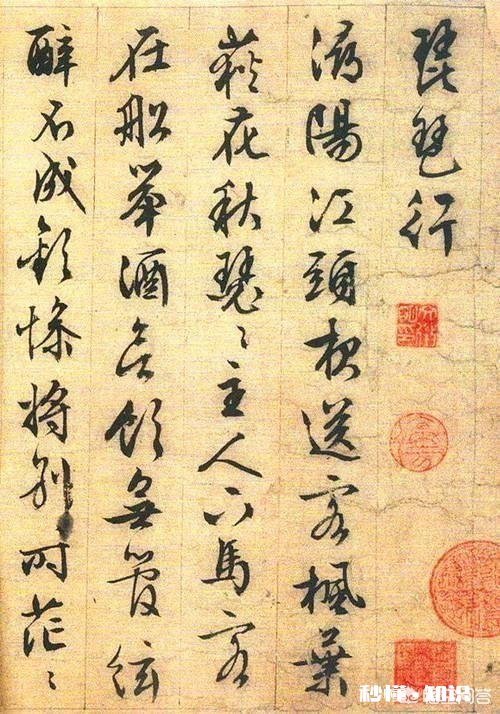 琵琶行
潯陽江頭夜送客楓葉
荻花秋瑟〻主人下馬客
在船舉酒欲飲無管絃
醉不成歡慘將別時茫〻
秒懂·知识